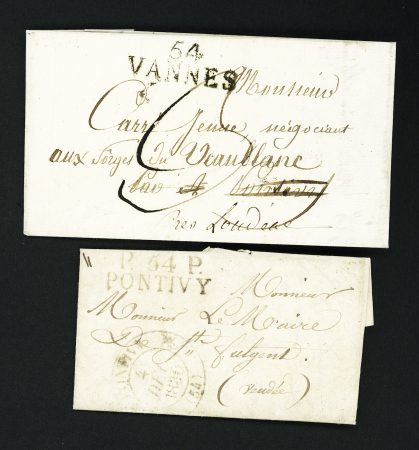 54
VANNES
Monsieur
Carré Jeune négociant
aux forges du Vaublanc
près Loudéac
P. 54 P.
PONTIVY
Monsieur
Monsieur Le Maire
De St. fulgent
(vendée)